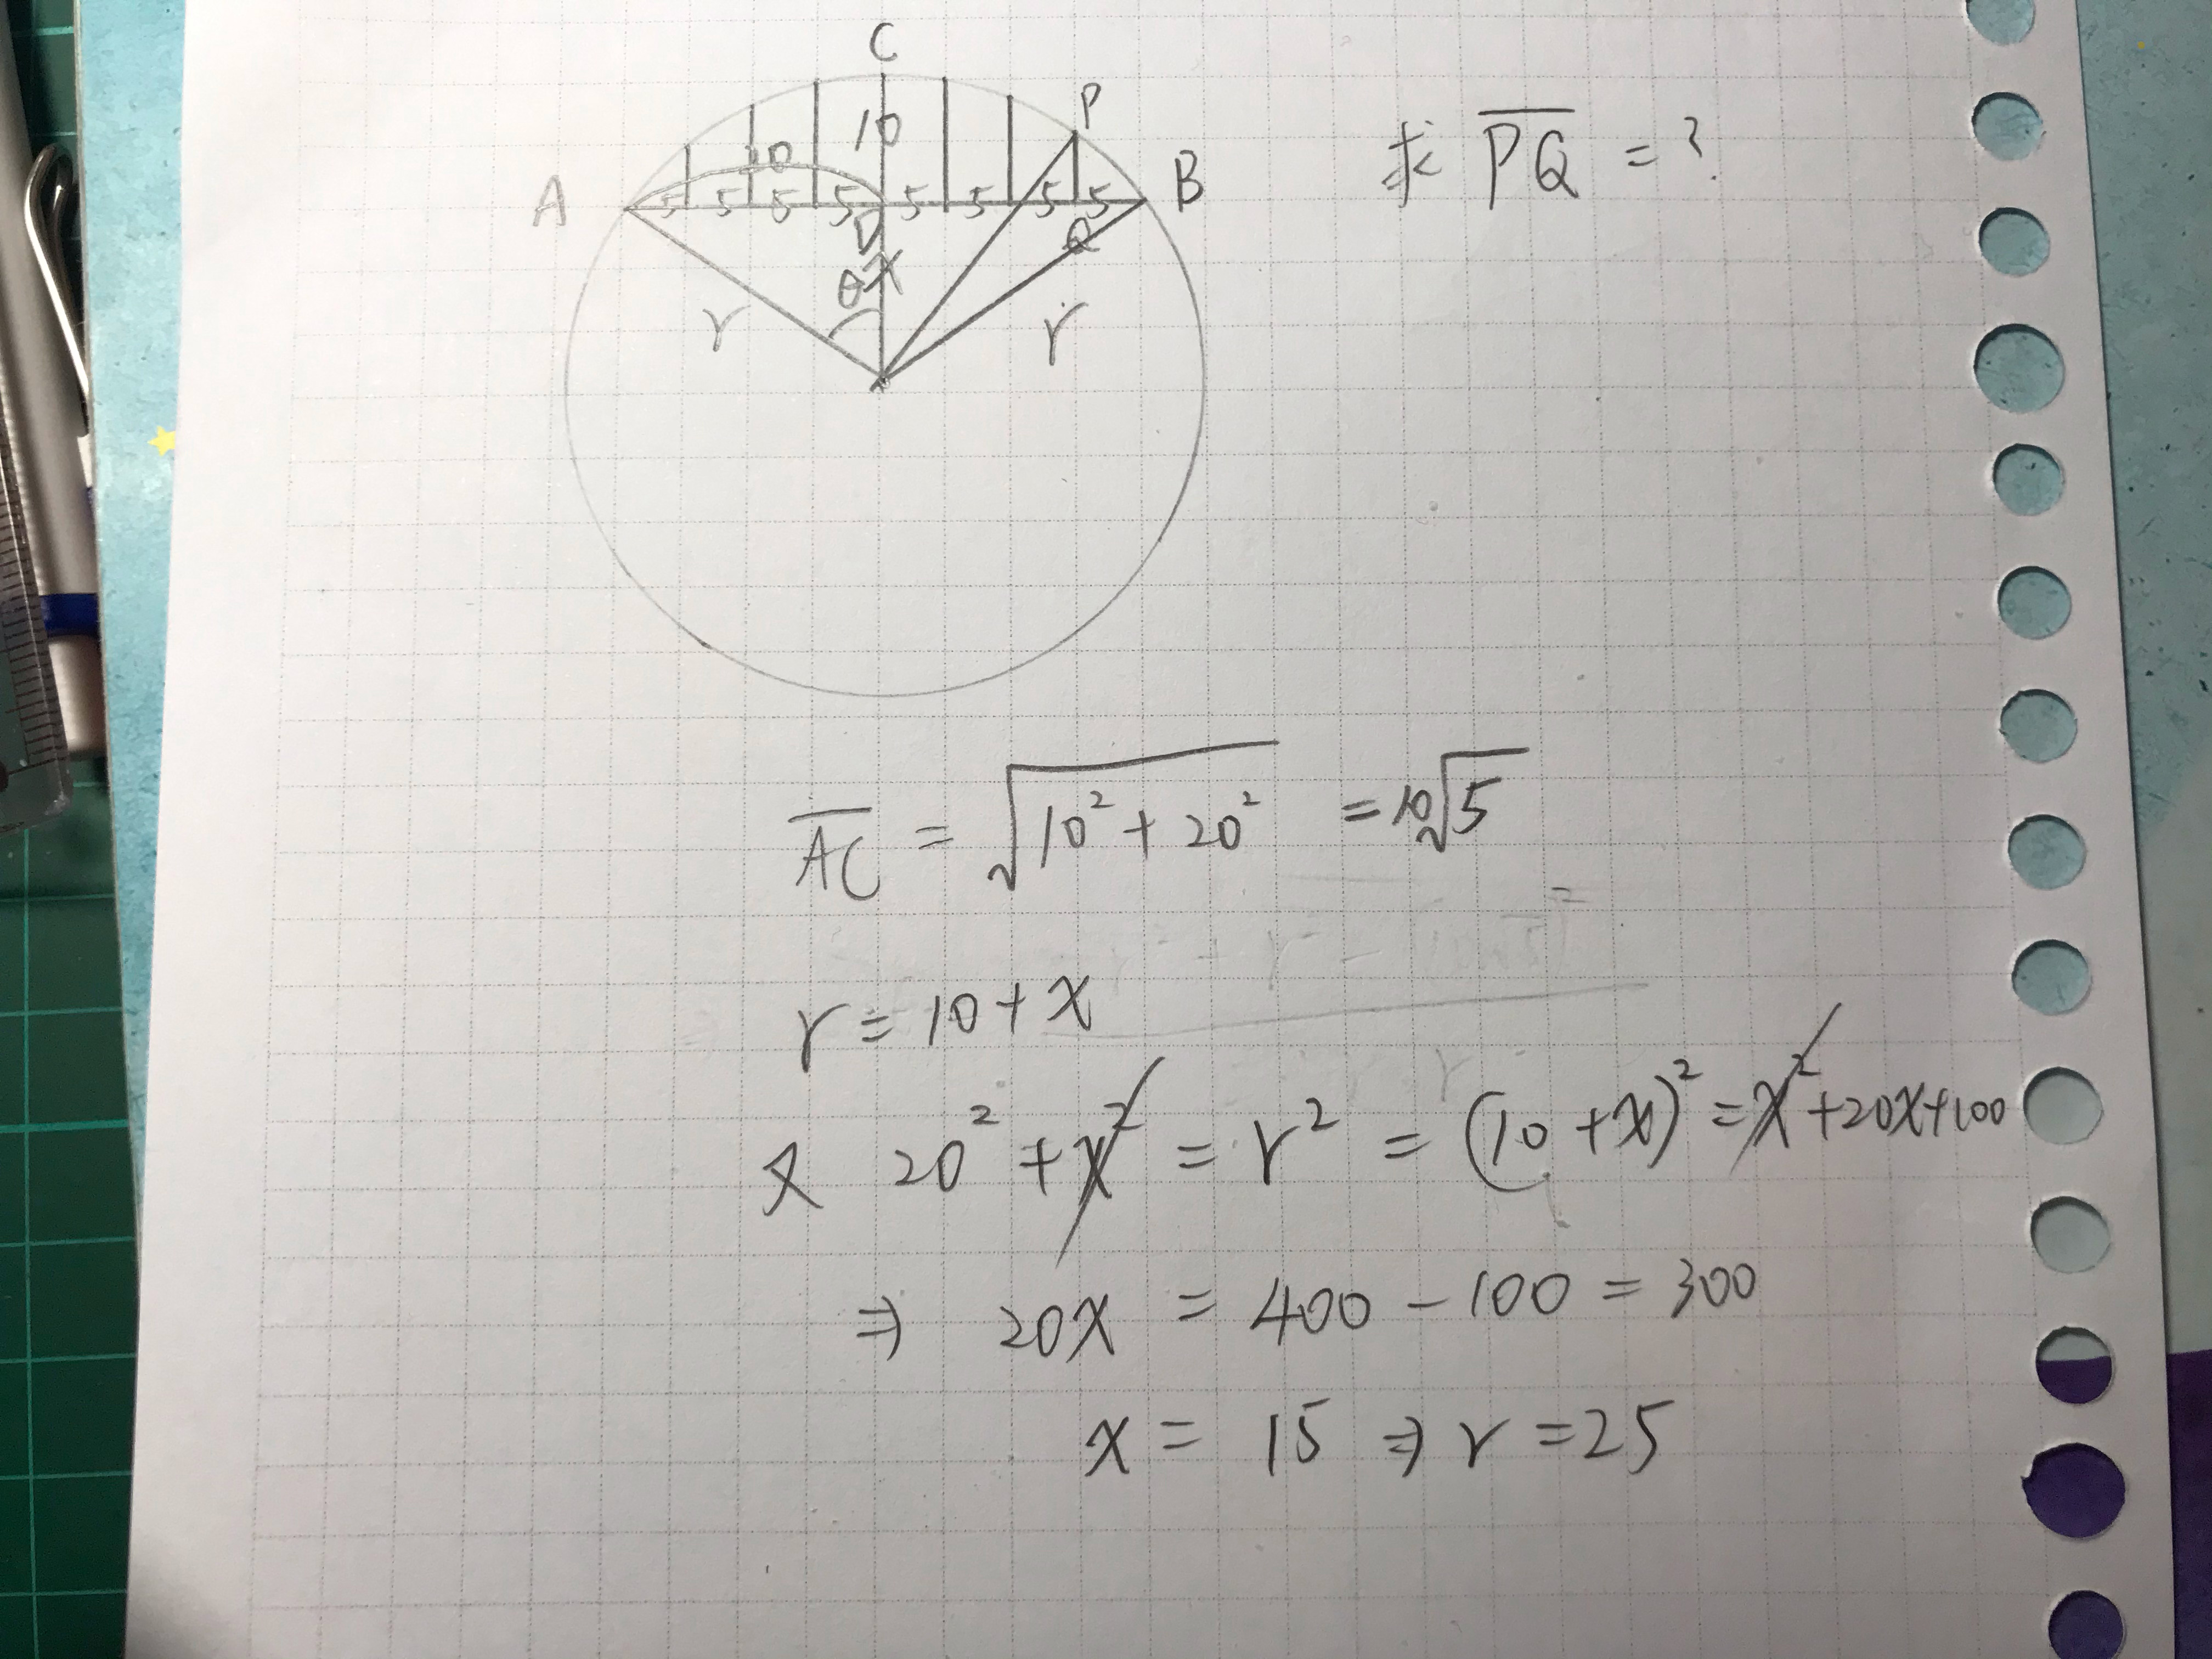 C
P
10
20
A
B
5 5 5 5 5 5 5 5
D
Q
θ
x
r
r
求 PQ = ?
AC = √(10² + 20²) = 10√5
r = 10 + x
又 20² + x² = r² = (10 + x)² = x² + 20x + 100
⇒ 20x = 400 - 100 = 300
x = 15 ⇒ r = 25